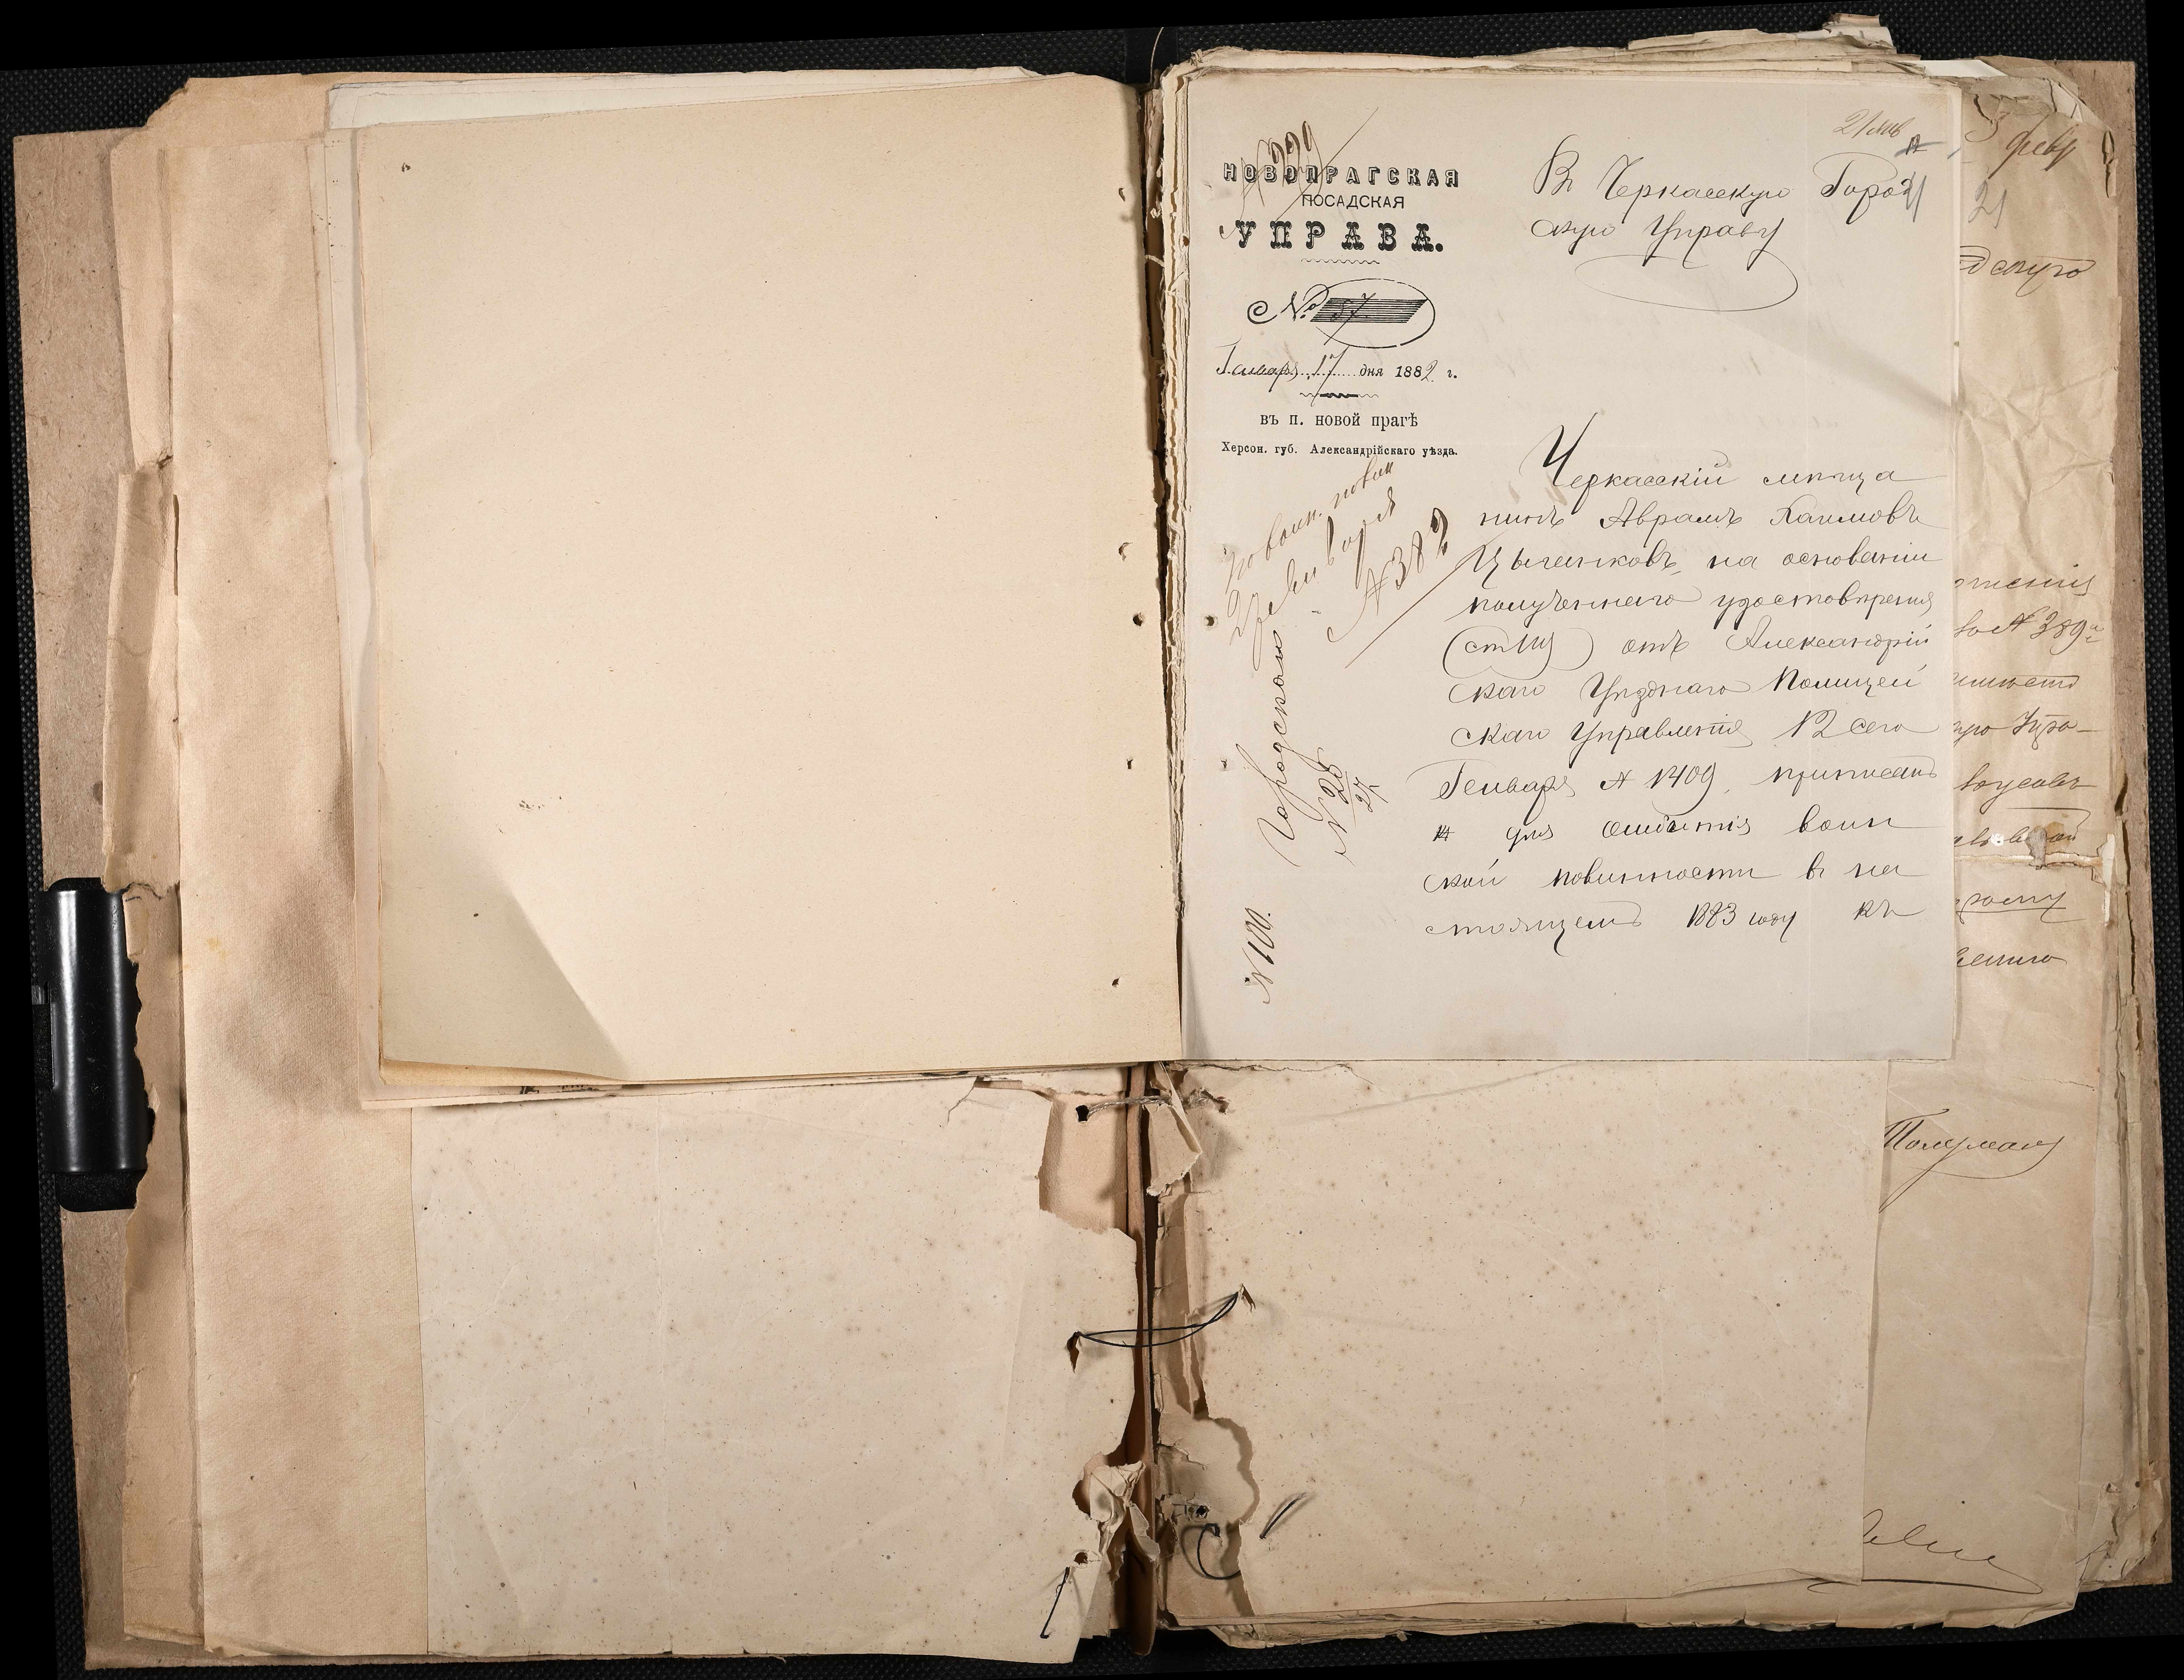 21 янв
№ 229
НОВОПРАГСКАЯ
ПОСАДСКАЯ
УПРАВА.
№ 87
Января 17 дня 1882 г.
въ п. новой прагѣ
Херсон. губ. Александрійскаго уѣзда.
Въ Черкасскую Город
скую Управу
Черкасскій мѣща
нинъ Аврамъ Хаимовъ
Цыганковъ, на основаніи
полученнаго удостовѣренія
(ст III) отъ Александрій
скаго Уѣзднаго Полицей
скаго Управленія 12 сего
Генваря № 1409, приписанъ
для отбытія воин
ской повинности въ на
стоящемъ 1883 году къ
По воин. повин
№ 382
Городскаго
№ 25
27
№ 100.
3 февр
21
дскую
№ 389